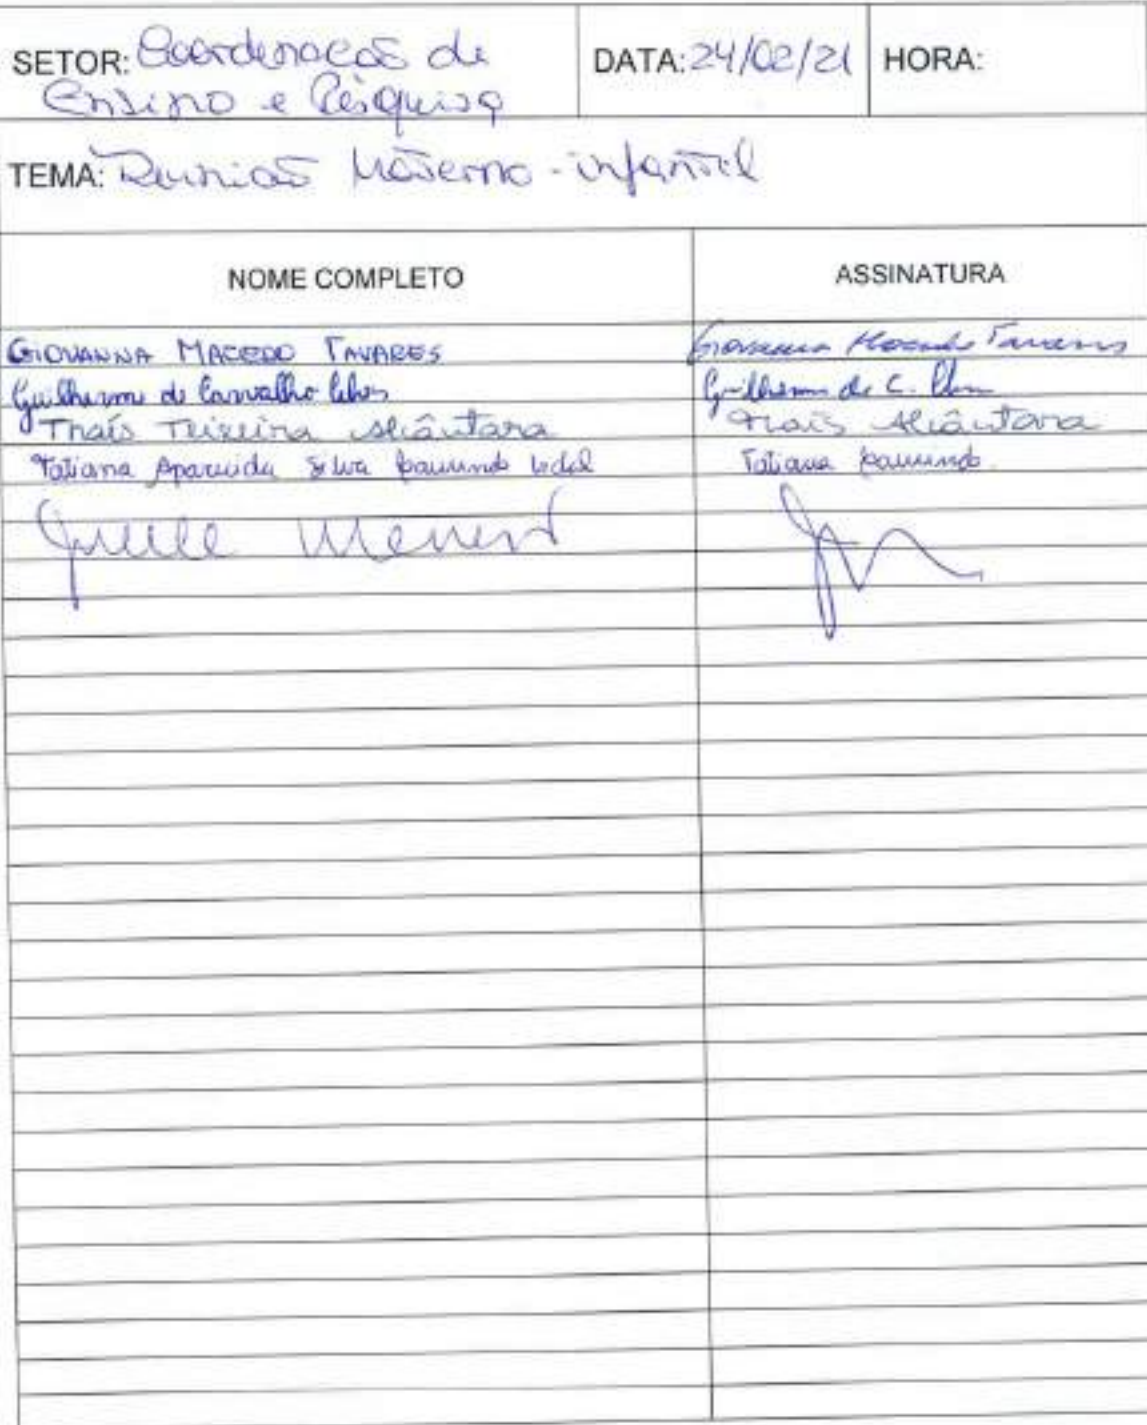 SETOR: Coordenação de
Ensino e Pesquisa
DATA: 24/02/21
HORA:
TEMA: Reunião Materno-infantil
NOME COMPLETO ASSINATURA
GIOVANNA MACEDO TAVARES Giovanna Macedo Tavares
Guilherme de Carvalho Guilherme de C.
Thaís Teixeira Alcântara Thaís Alcântara
Tatiana Aparecida Silva Tatiana